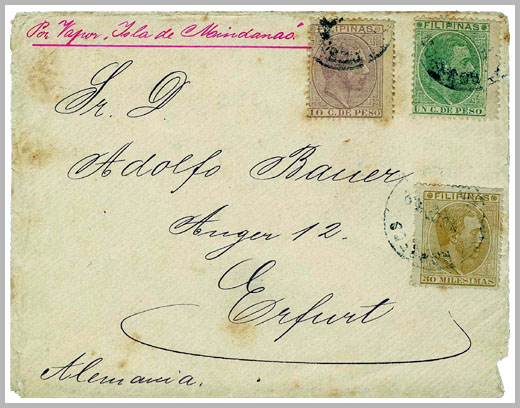 Por Vapor "Isla de Mindanao"
FILIPINAS
10 C. DE PESO
FILIPINAS
UN C. DE PESO
Sr. D.
Adolfo Bauer
Anger 12.
FILIPINAS
30 MILESIMAS
Erfurt
Alemania.